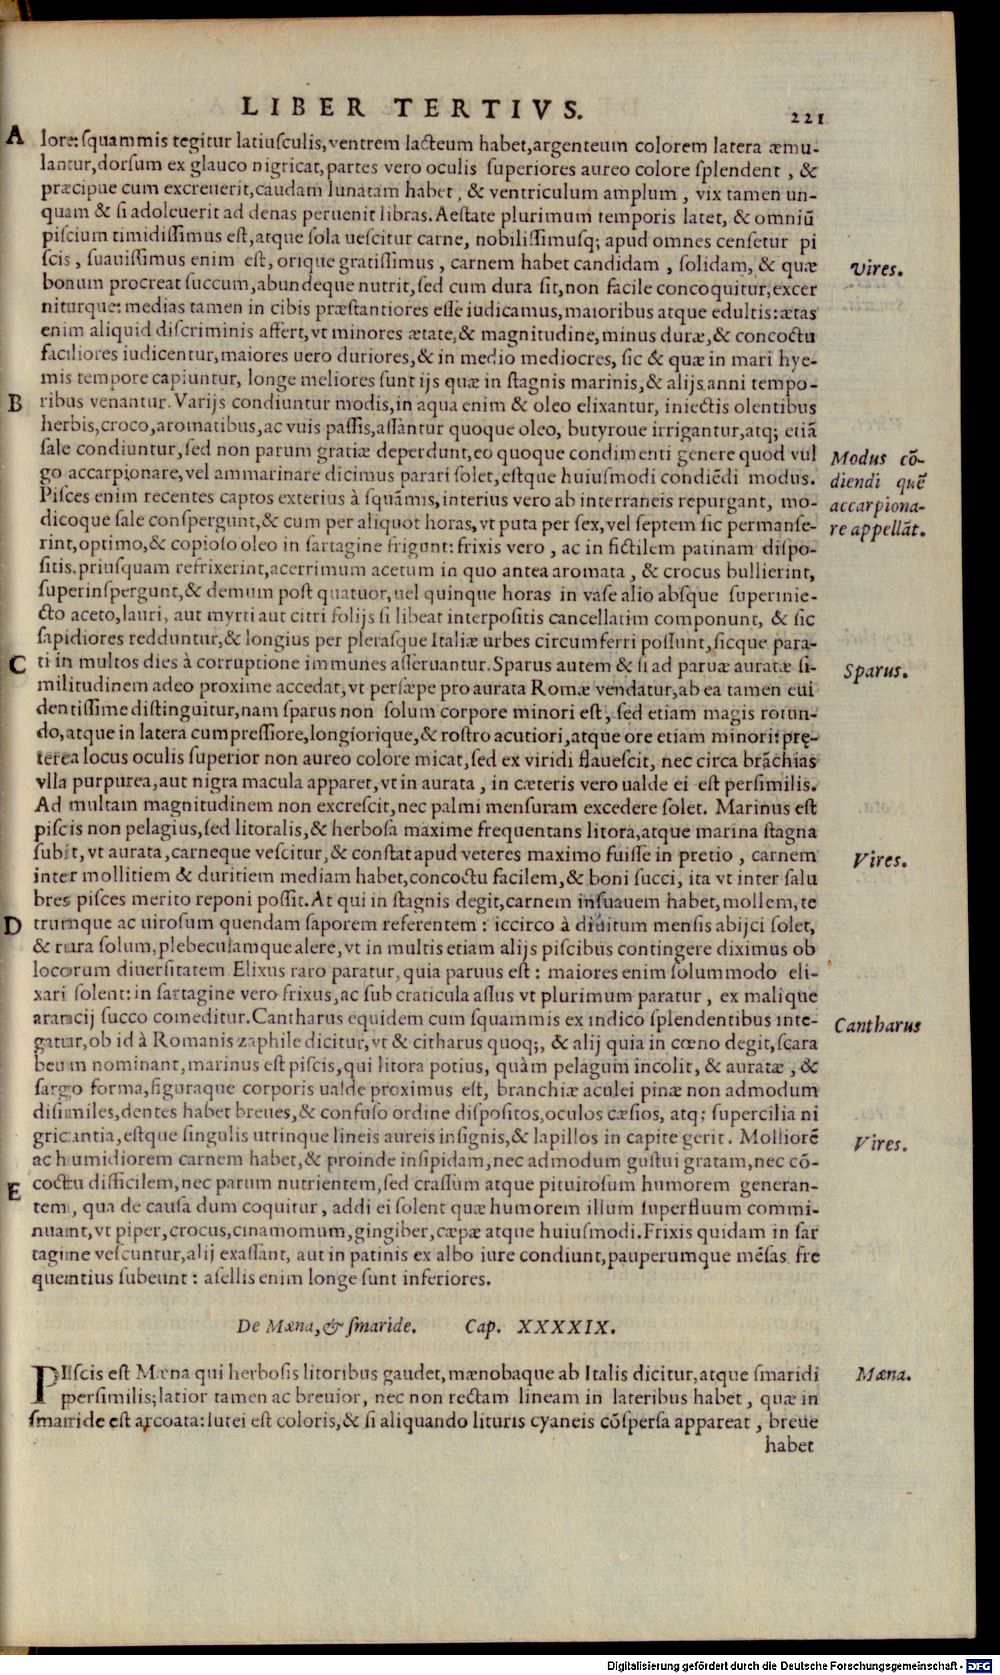 LIBER TERTIVS. 221
A lore: squammis tegitur latiusculis, ventrem lacteum habet, argenteum colorem latera æmu-
lantur, dorsum ex glauco nigricat, partes vero oculis superiores aureo colore splendent, &
præcipue cum excreuerit, caudam lunatam habet, & ventriculum amplum, vix tamen un-
quam & si adoleuerit ad denas peruenit libras. Aestate plurimum temporis latet, & omniũ
piscium timidissimus est, atque sola uescitur carne, nobilissimusq; apud omnes censetur pi
scis, suauissimus enim est, orique gratissimus, carnem habet candidam, solidam, & quæ
Vires.
bonum procreat succum, abundeque nutrit, sed cum dura sit, non facile concoquitur, excer
niturque: medias tamen in cibis præstantiores esse iudicamus, maioribus atque edultis: ætas
enim aliquid discriminis affert, vt minores ætate, & magnitudine, minus duræ, & concoctu
faciliores iudicentur, maiores uero duriores, & in medio mediocres, sic & quæ in mari hye-
mis tempore capiuntur, longe meliores sunt ijs quæ in stagnis marinis, & alijs anni tempo-
B ribus venantur. Varijs condiuntur modis, in aqua enim & oleo elixantur, iniectis olentibus
herbis, croco, aromatibus, ac vuis passis, assantur quoque oleo, butyroue irrigantur, atq; etiã
sale condiuntur, sed non parum gratiæ deperdunt, eo quoque condimenti genere quod vul
Modus cõ-
go accarpionare, vel ammarinare dicimus parari solet, estque huiusmodi condiẽdi modus.
diendi quẽ
Pisces enim recentes captos exterius à squãmis, interius vero ab interraneis repurgant, mo-
accarpiona-
dicoque sale conspergunt, & cum per aliquot horas, vt puta per sex, vel septem sic permanse-
re appellãt.
rint, optimo, & copioso oleo in sartagine frigunt: frixis vero, ac in fictilem patinam dispo-
sitis, priusquam refrixerint, acerrimum acetum in quo antea aromata, & crocus bullierint,
superinspergunt, & demum post quatuor, uel quinque horas in vase alio absque superinie-
cto aceto, lauri, aut myrti aut citri folijs si libeat interpositis cancellatim componunt, & sic
sapidiores redduntur, & longius per plerasque Italiæ urbes circumferri possunt, sicque para-
C ti in multos dies à corruptione immunes asseruantur. Sparus autem & si ad paruæ auratæ si-
Sparus.
militudinem adeo proxime accedat, vt persæpe pro aurata Romæ vendatur, ab ea tamen eui
dentissime distinguitur, nam sparus non solum corpore minori est, sed etiam magis rotun-
do, atque in latera cumpressiore, longiorique, & rostro acutiori, atque ore etiam minori: prę-
terea locus oculis superior non aureo colore micat, sed ex viridi flauescit, nec circa brãchias
vlla purpurea, aut nigra macula apparet, vt in aurata, in cæteris vero ualde ei est persimilis.
Ad multam magnitudinem non excrescit, nec palmi mensuram excedere solet. Marinus est
piscis non pelagius, sed litoralis, & herbosa maxime frequentans litora, atque marina stagna
subit, vt aurata, carneque vescitur, & constat apud veteres maximo fuisse in pretio, carnem
Vires.
inter mollitiem & duritiem mediam habet, concoctu facilem, & boni succi, ita vt inter salu
bres pisces merito reponi possit. At qui in stagnis degit, carnem insuauem habet, mollem, te
D trumque ac uirosum quendam saporem referentem: iccirco à diuitum mensis abijci solet,
& rura solum, plebeculamque alere, vt in multis etiam alijs piscibus contingere diximus ob
locorum diuersitatem Elixus raro paratur, quia paruus est: maiores enim solummodo eli-
xari solent: in sartagine vero frixus, ac sub craticula assus vt plurimum paratur, ex malique
arancij succo comeditur. Cantharus equidem cum squammis ex indico splendentibus inte-
Cantharus
gatur, ob id à Romanis zaphile dicitur, vt & citharus quoq;, & alij quia in cœno degit, scara
beum nominant, marinus est piscis, qui litora potius, quàm pelagum incolit, & auratæ, &
sargo forma, figuraque corporis ualde proximus est, branchiæ aculei pinæ non admodum
disimiles, dentes habet breues, & confuso ordine dispositos, oculos cæsios, atq; supercilia ni
gricantia, estque singulis utrinque lineis aureis insignis, & lapillos in capite gerit. Molliorẽ
Vires.
ac humidiorem carnem habet, & proinde insipidam, nec admodum gustui gratam, nec cõ-
E coctu difficilem, nec parum nutrientem, sed crassum atque pituitosum humorem generan-
tem, qua de causa dum coquitur, addi ei solent quæ humorem illum superfluum commi-
nuant, vt piper, crocus, cinamomum, gingiber, cæpæ atque huiusmodi. Frixis quidam in sar
tagine vescuntur, alij exassant, aut in patinis ex albo iure condiunt, pauperumque mẽsas fre
quentius subeunt: asellis enim longe sunt inferiores.
De Mæna, & smaride. Cap. XXXXIX.
PIscis est Mæna qui herbosis litoribus gaudet, mænobaque ab Italis dicitur, atque smaridi
Mæna.
persimilis; latior tamen ac breuior, nec non rectam lineam in lateribus habet, quæ in
smaride est arcoata: lutei est coloris, & si aliquando lituris cyaneis cõspersa appareat, breue
habet
Digitalisierung gefördert durch die Deutsche Forschungsgemeinschaft - DFG